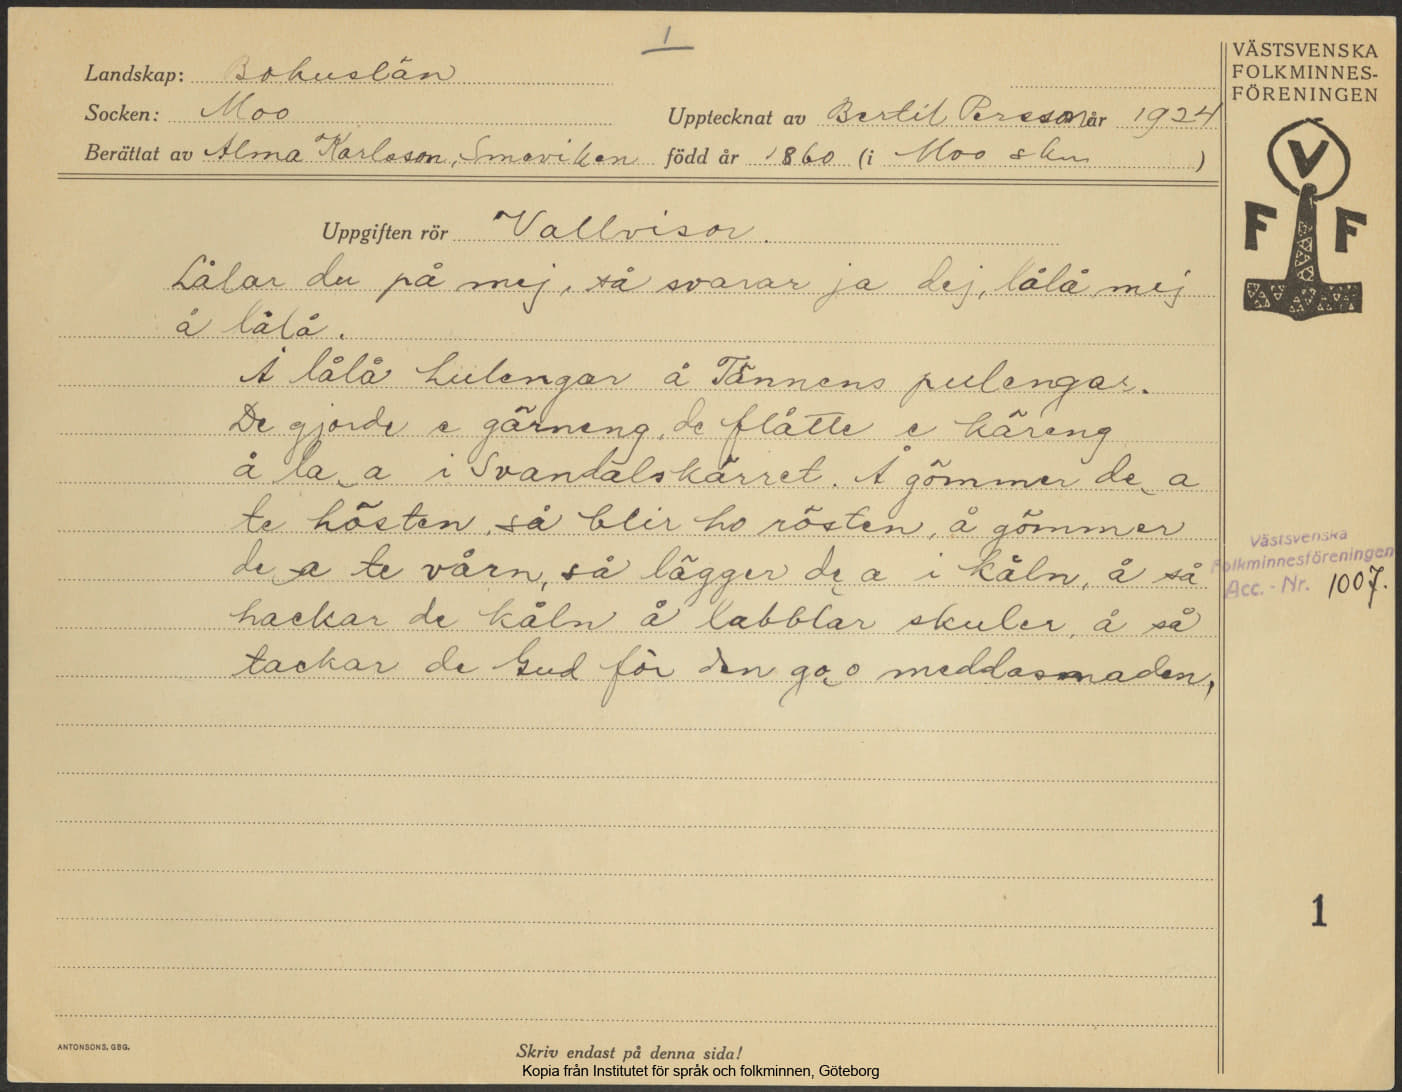 1
Landskap: Bohuslän
Socken: Moo
Upptecknat av Bertil Persson år 1924
Berättat av Alma Karlsson, Smeviken född år 1860 (i Moo skn )
VÄSTSVENSKA
FOLKMINNES-
FÖRENINGEN
V
F F
Uppgiften rör Vallvisor.
Lålar du på mej, så svarar ja dej, lålå mej
å lålå.
Å lålå lulengar å Tännens pulengar.
De gjorde e gärneng, de flåtte e käreng
å la a i Svandalskärret. Å gömmer de a
te hösten, så blir ho rösten, å gömmer
de a te vårn, så lägger de a i kåln, å så
hackar de kåln å labblar skuler, å så
tackar de Gud för den go o meddasmaden,
Västsvenska
Folkminnesföreningen
Acc. - Nr. 1007.
1
ANTONSONS, GBG.
Skriv endast på denna sida!
Kopia från Institutet för språk och folkminnen, Göteborg